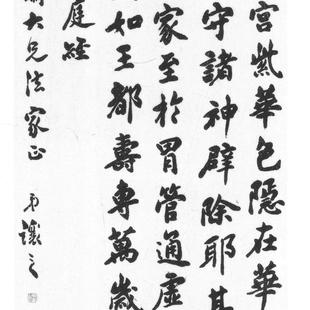 宮紫華色隱在華
守諸神辟除耶其
家至於胃管通虛
如王都壽專萬歲
庭經
大兄法家正 弟讓之